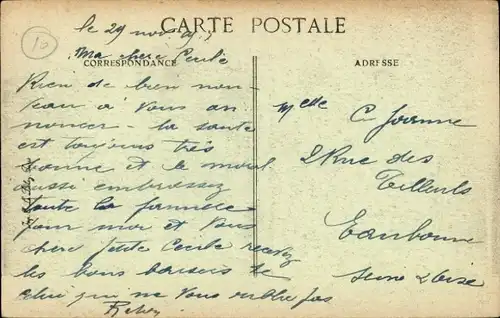 CARTE POSTALE
CORRESPONDANCE
ADRESSE
10
le 29 nov
Ma chere Cecile
Rien de bien nou-
veau à vous an
noncer - la santé
est toujours très
bonne et le moral
aussi embrassez
toute la famille
pour moi et vous
chère petite Cecile recevez
les bons baisers de
celui qui ne vous oublie pas
Melle C. Joanne
2 Rue des
Tilleuls
Eaubonne
Seine & Oise